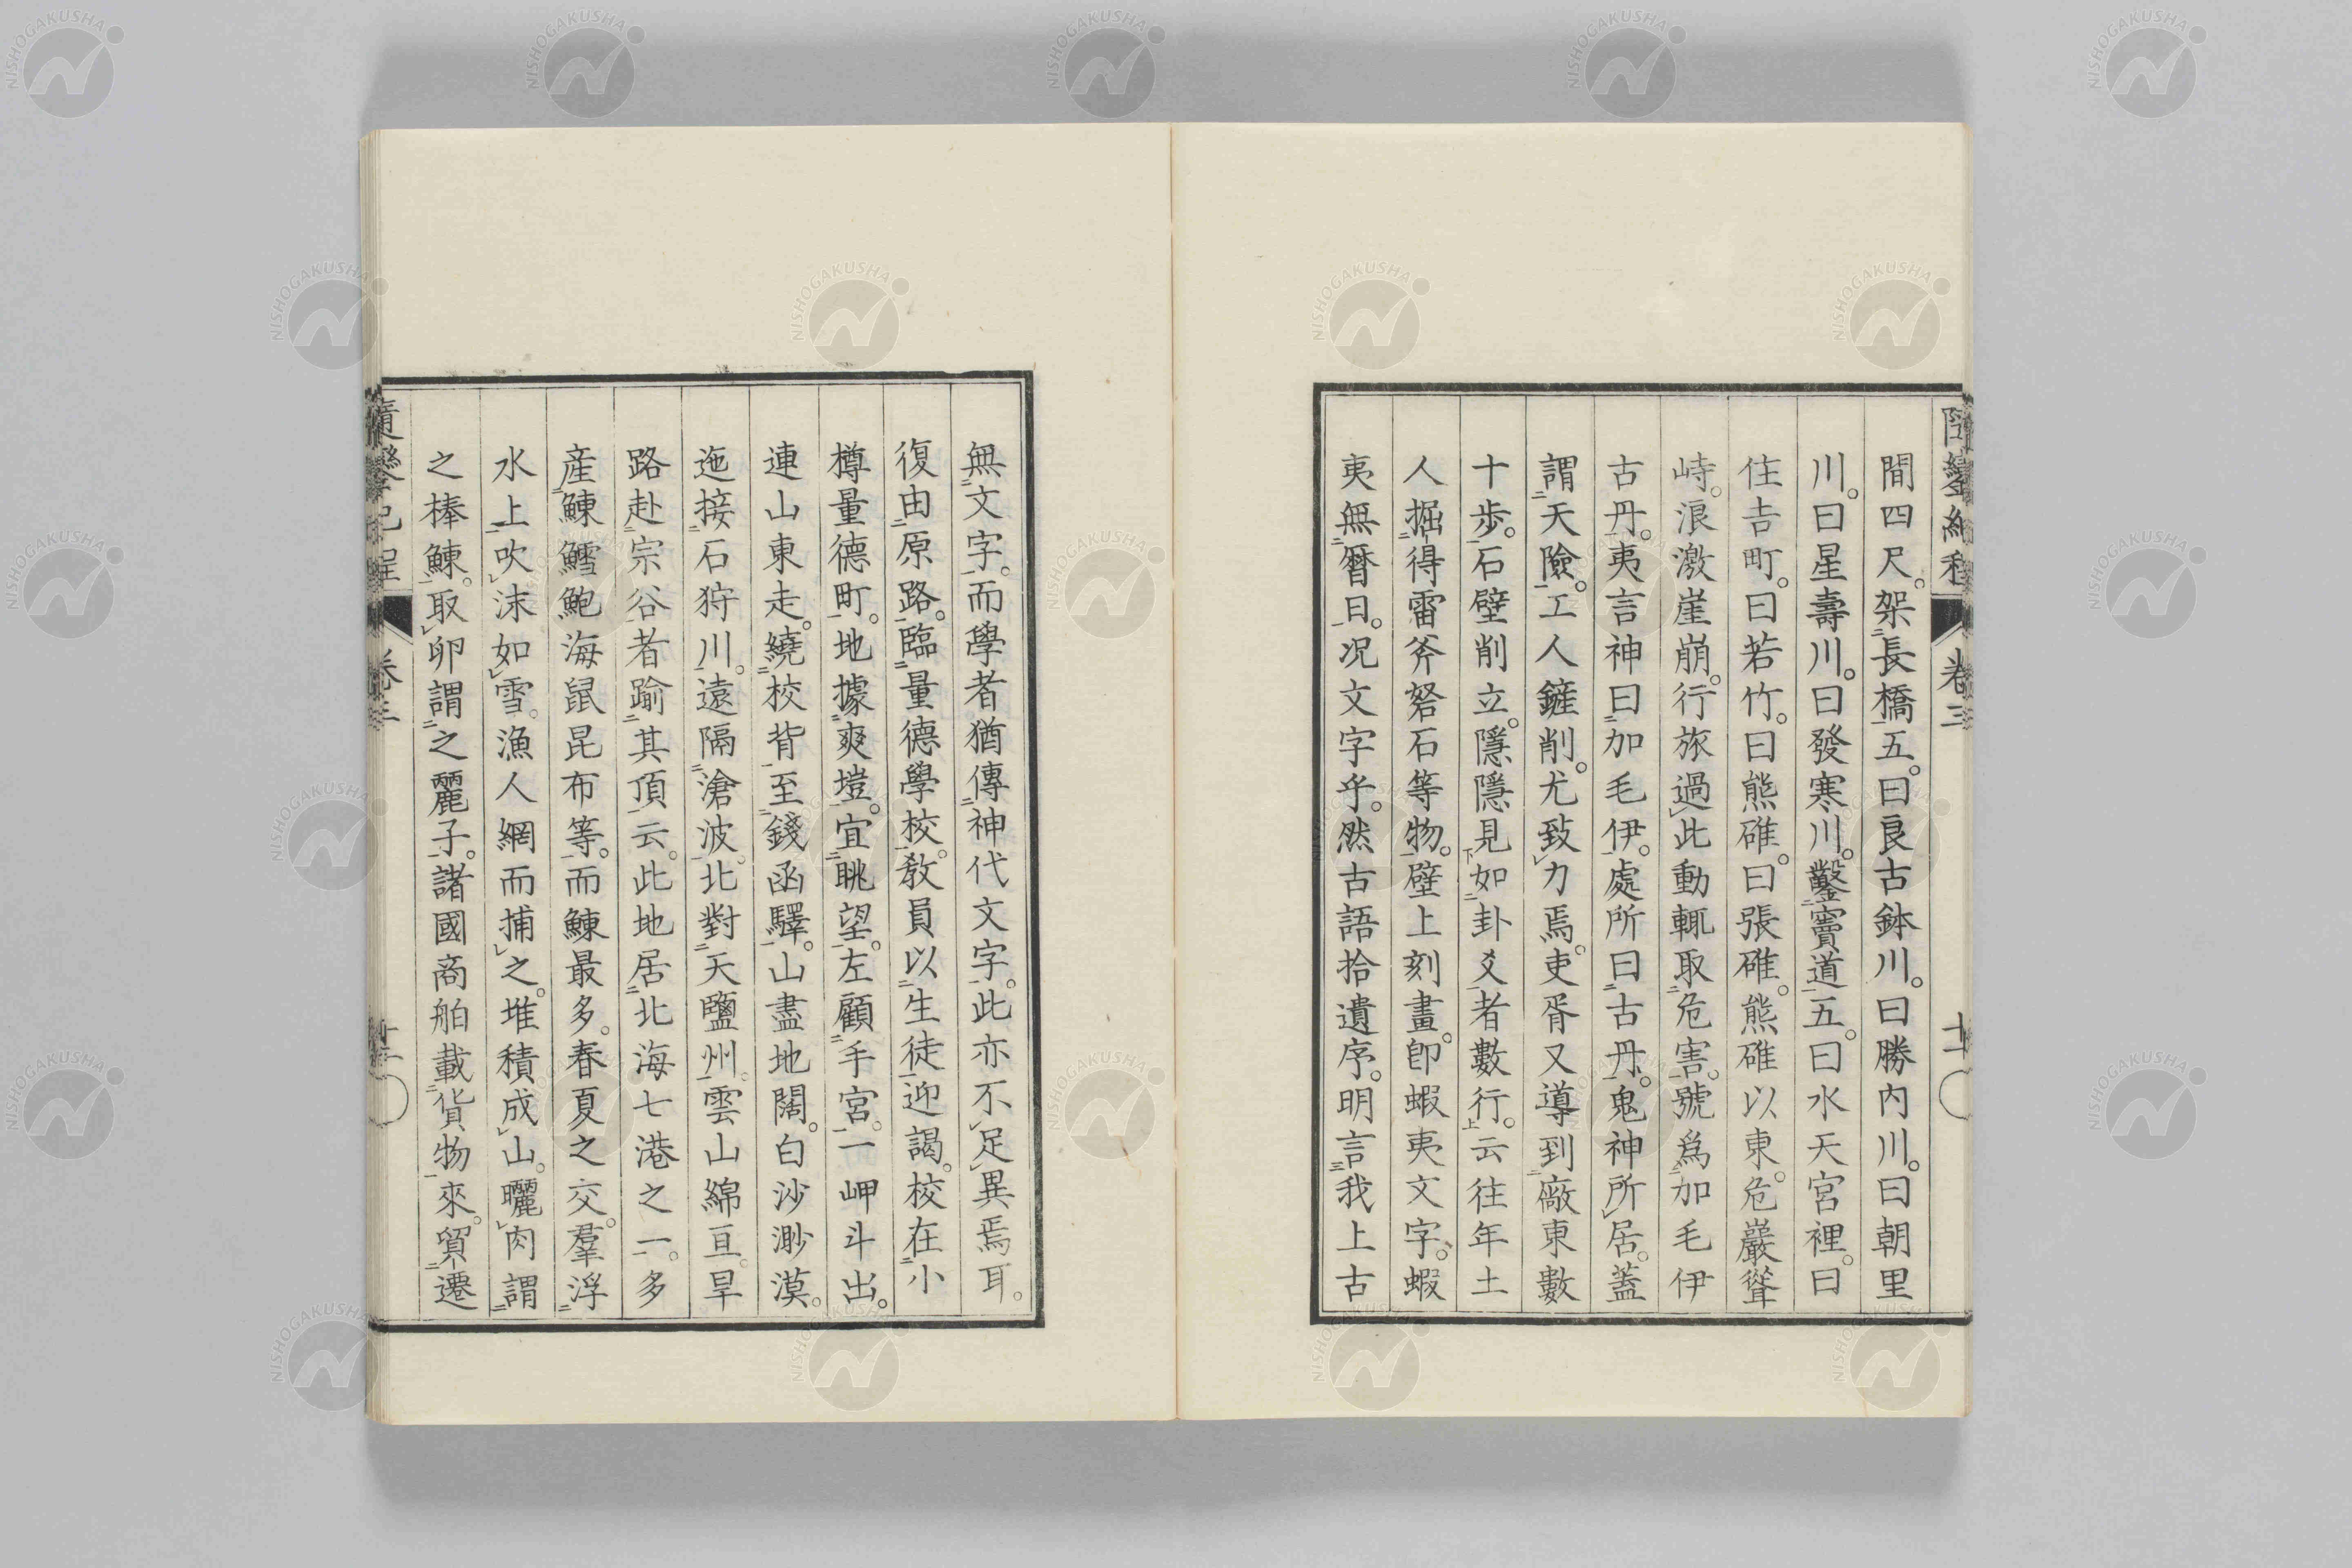 間四尺。架長橋五。曰良古鉢川。曰勝内川。曰朝里
川。曰星壽川。曰發寒川。鑿竇道五。曰水天宮裡。曰
住吉町。曰若竹。曰熊碓。曰張碓。熊碓以東。危巖聳
峙。浪激崖崩。行旅過此動輒取危害。號爲加毛伊
古丹。夷言神曰加毛伊。處所曰古丹。鬼神所居。蓋
謂天險。工人鏟削。尤致力焉。吏胥又導到廠東數
十歩。石壁削立。隱隱見如卦爻者數行。云往年土
人掘得雷斧砮石等物。壁上刻畫。卽蝦夷文字。蝦
夷無曆日。况文字乎。然古語拾遺序。明言我上古
無文字。而學者猶傳神代文字。此亦不足異焉耳。
復由原路。臨量德學校。教員以生徒迎謁。校在小
樽量德町。地據爽塏。宜眺望。左顧手宮。一岬斗出。
連山東走。繞校背至錢函驛。山盡地闊。白沙渺漠。
迤接石狩川。遠隔滄波。北對天鹽州。雲山綿亘。旱
路赴宗谷者踰其頂云。此地居北海七港之一。多
産鰊鱈鮑海鼠昆布等。而鰊最多。春夏之交。羣浮
水上吹沫如雪。漁人網而捕之。堆積成山。曬肉謂
之棒鰊。取卵謂之麗子。諸國商舶載貨物來。貿遷
卷三
NISHOGAKUSHA